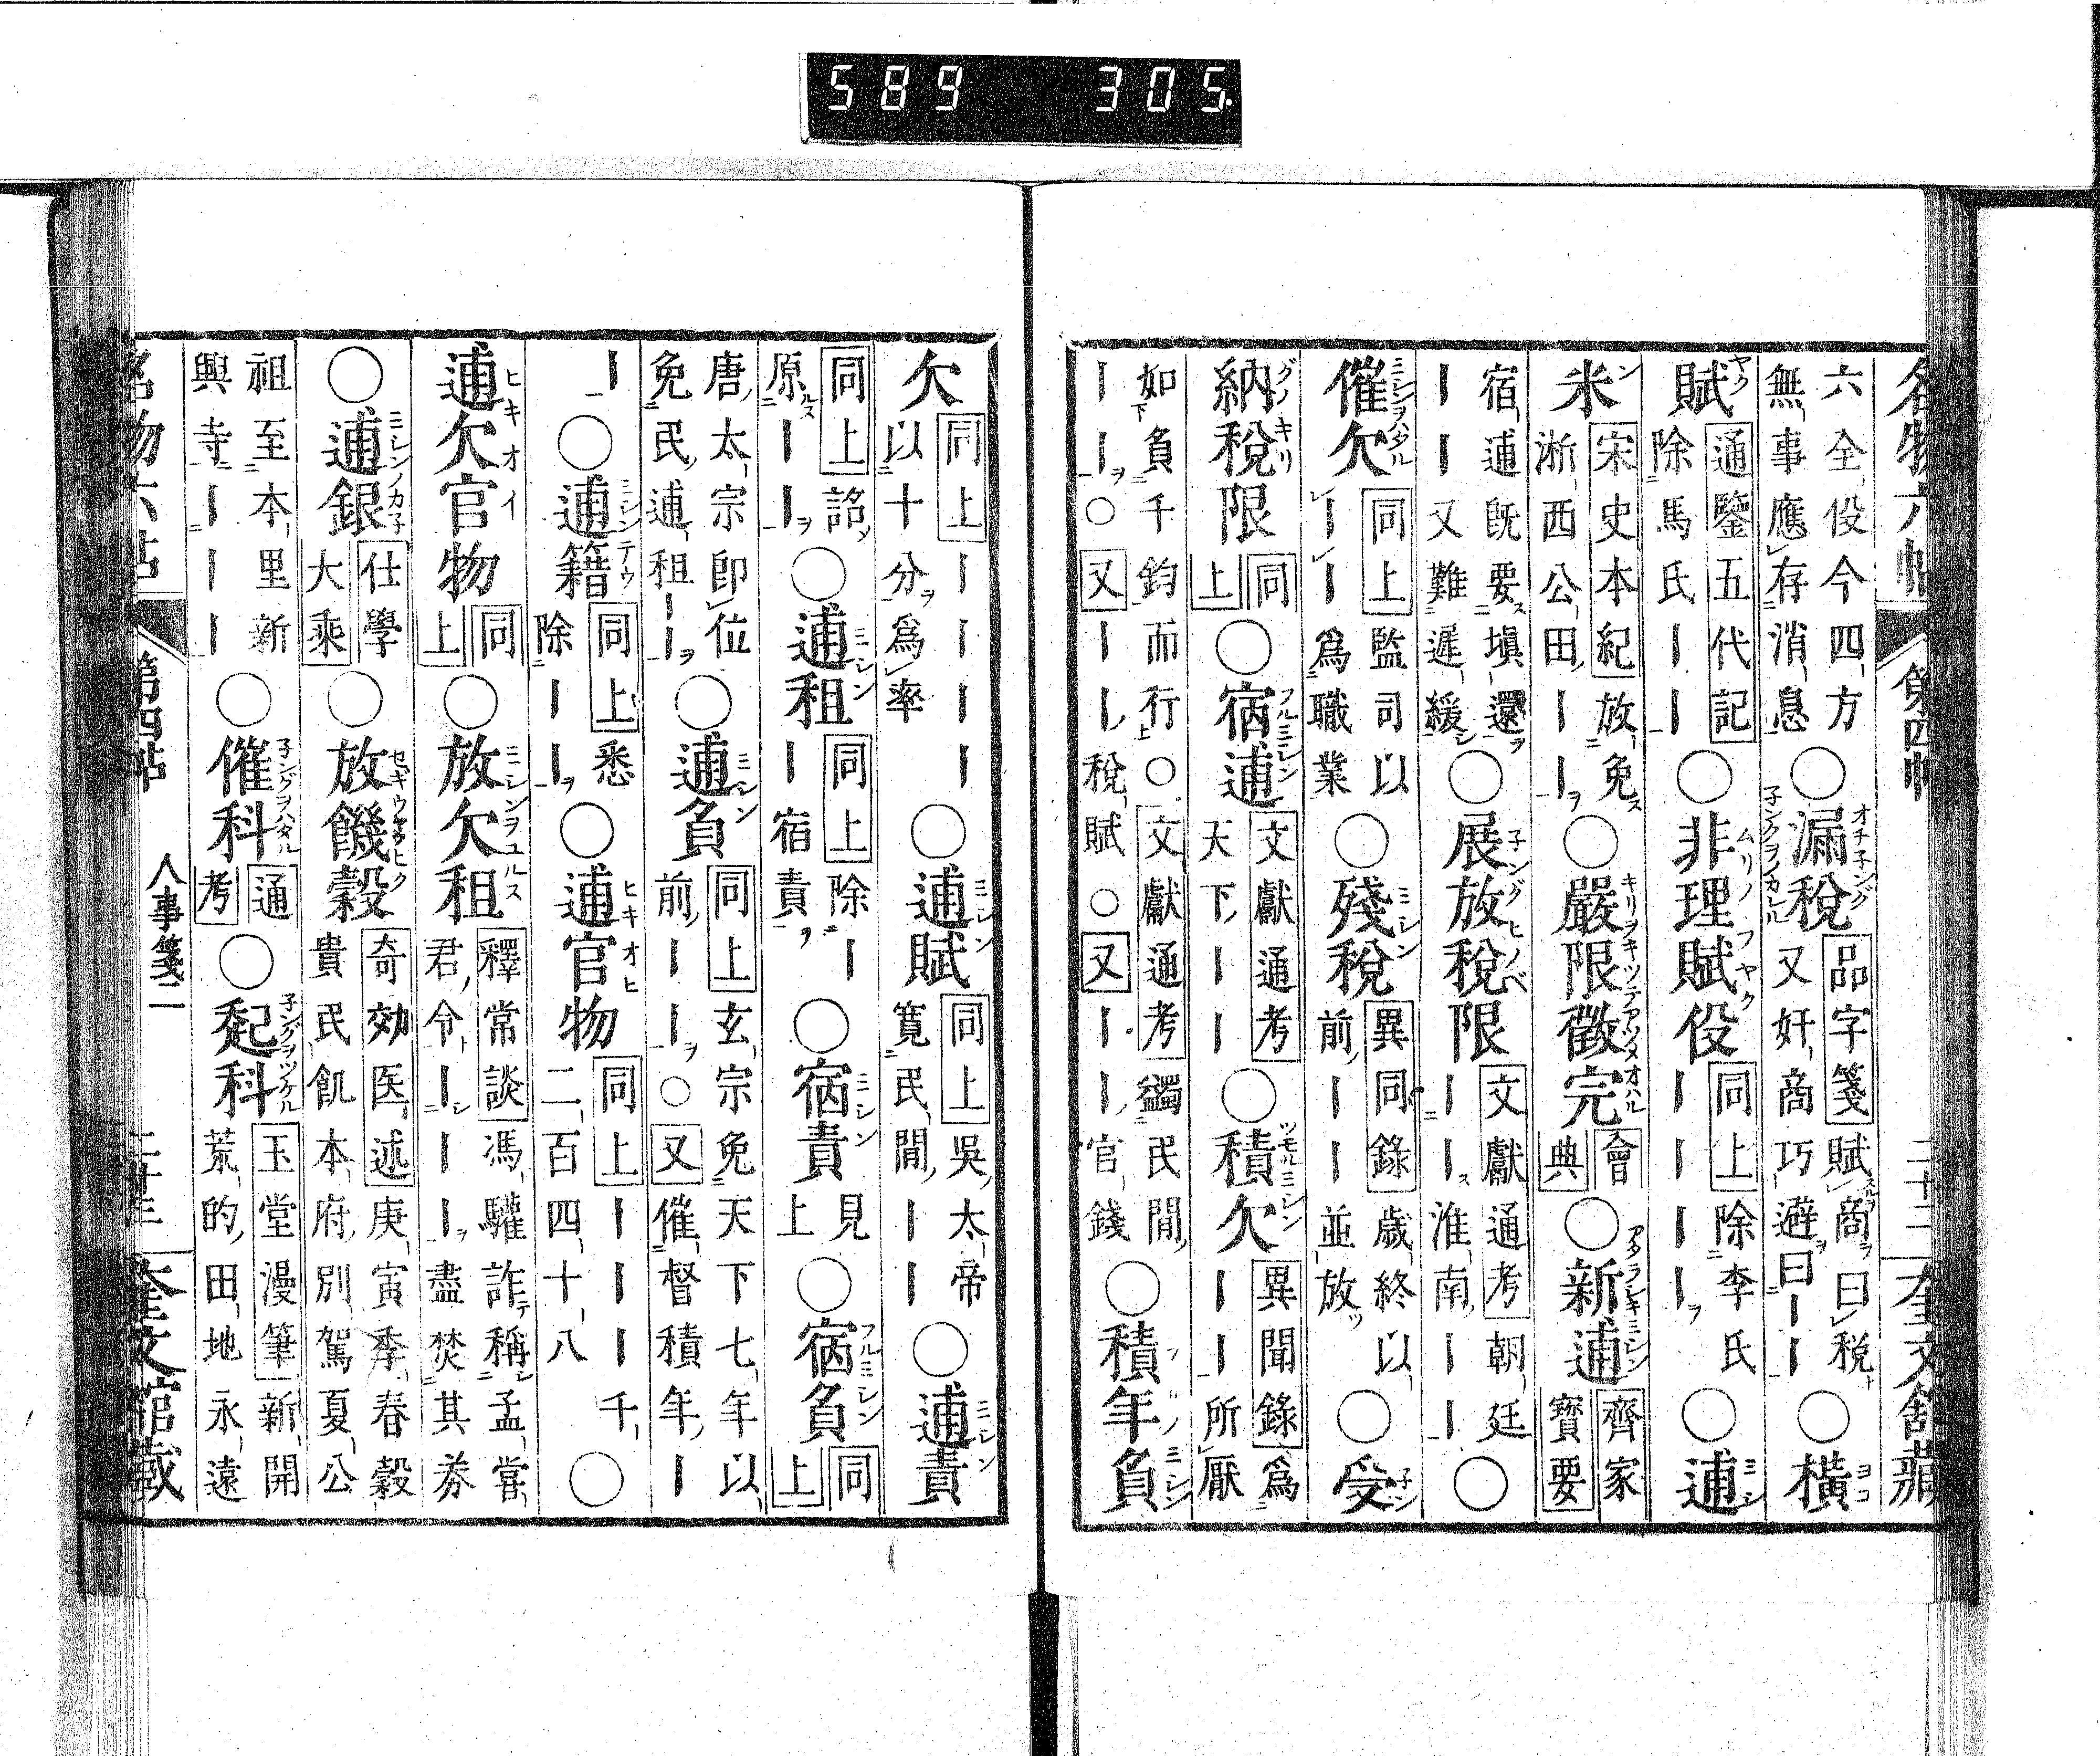 589 305
名物六帖 第四帖 二十二 奎文館藏
六全役今四方無事應存消息○漏税品字箋賦商曰税又奸商巧避曰――○橫
賦通鑒五代記除李氏馬氏――○非理賦役同上除――――○逋
米宋史本紀放免浙西公田――○嚴限徵完會典○新逋齊家寶要
宿逋既要塡還――又難遲緩○展放税限文獻通考朝廷――淮南――○
催欠同上監司以――爲職業○殘税異同錄歲終以前――並放○受
納税限同上○宿逋文獻通考天下――○積欠異聞錄爲――所厭
如負千鈞而行○文獻通考蠲民間――○又――税賦○又――官錢○積年負
欠同上――――以十分爲率○逋賦同上吳太帝寬民間――○逋責
同上詔原――○逋租同上除―宿責○宿責見上○宿負同上
唐太宗卽位免民逋租――○逋負同上玄宗免天下七年以前――○又催督積年―
―○逋籍同上悉除――○逋官物同上―――千二百四十八○
逋欠官物同上○放欠租釋常談馮驩詐稱孟嘗君令―――盡焚其劵
○逋銀仕學大乘○放饑穀奇効医述庚寅季春穀貴民飢本府別駕夏公
祖至本里新興寺―――○催科通考○起科玉堂漫筆新開荒的田地永遠
名物六帖 第四帖 人事箋二 二十三 奎文館藏